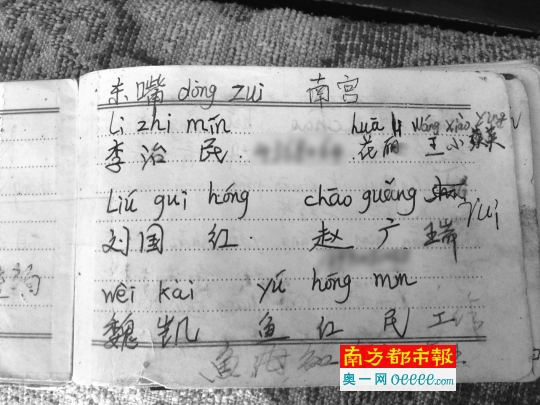 东嘴 dōng zuǐ 南宫
li zhi mín huā li wáng xiǎo
李治民 花丽 王小英
Liú gui hóng chāo guǎng ruì
刘国红 赵广瑞
wèi kǎi yú hóng mín
魏凯 鱼红民
鱼 红
南方都市報
奥一网 oeeee.com